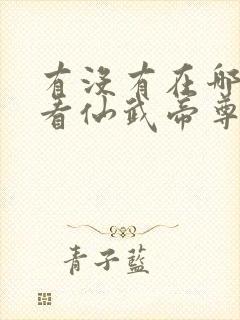 有没有在哪
看仙武帝尊
青子蓝